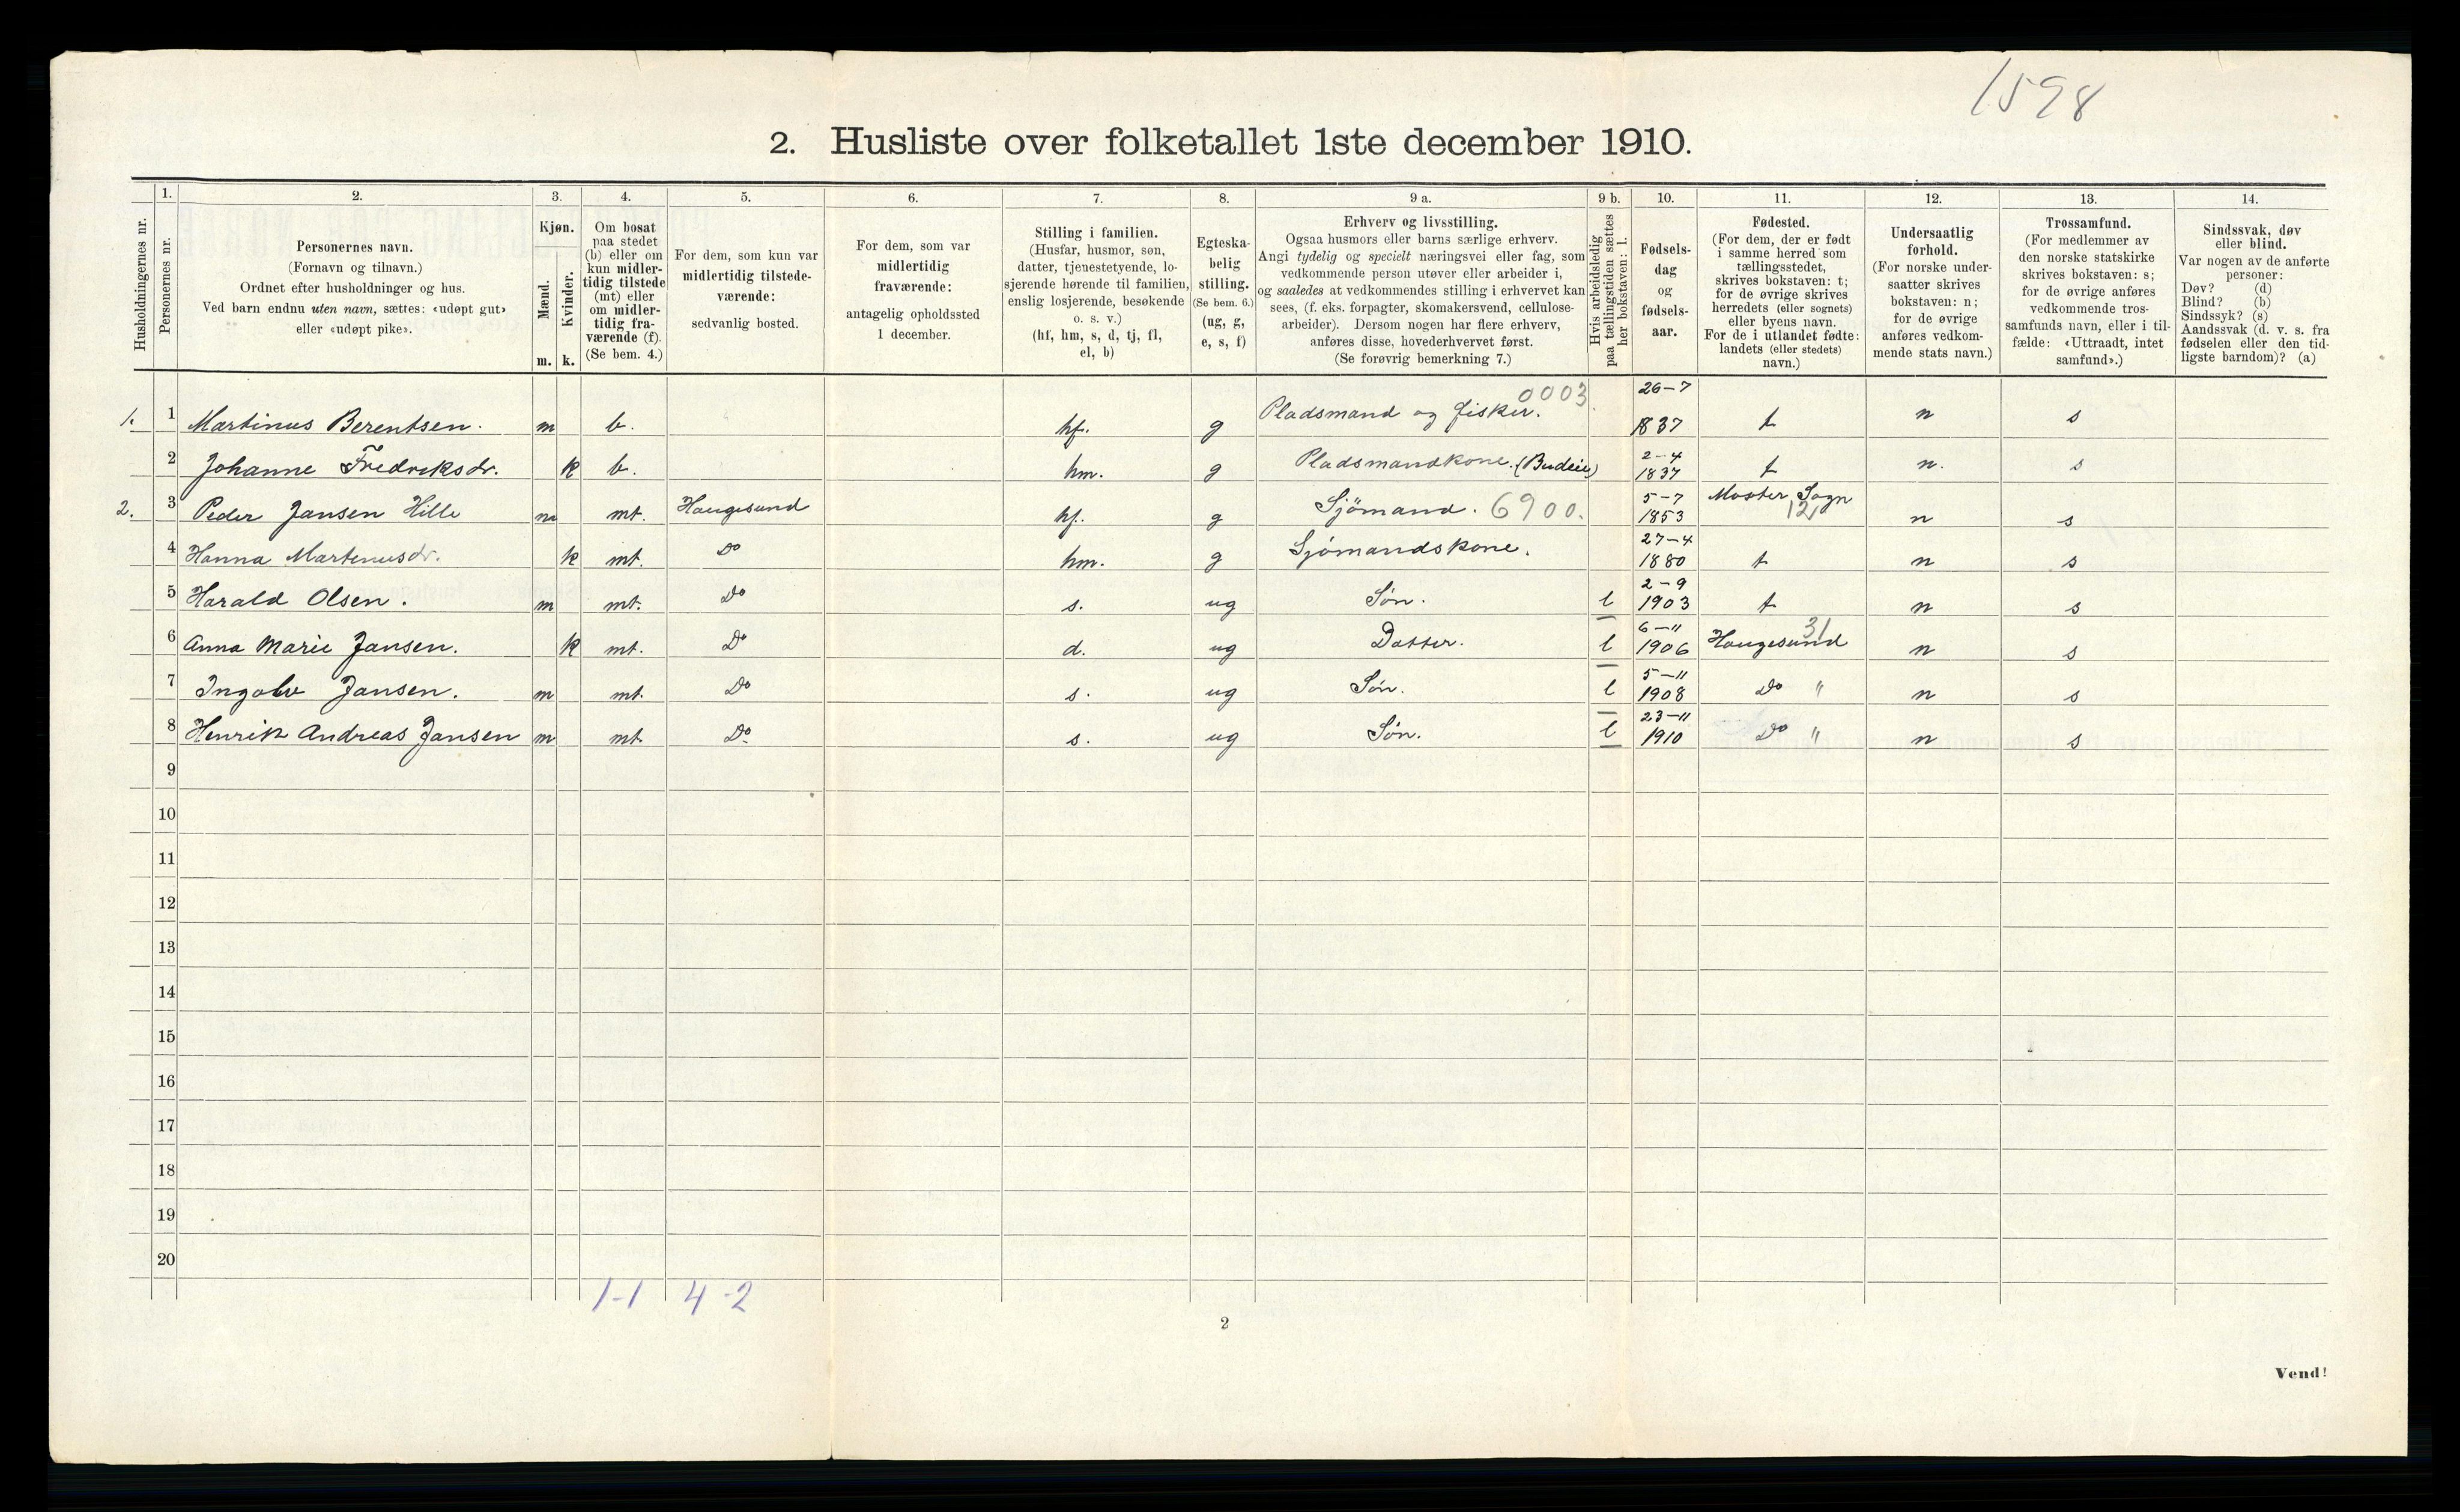 1598
2. Husliste over folketallet 1ste december 1910.
Husholdningernes nr.
1.
Personernes nr.
2.
Personernes navn.
(Fornavn og tilnavn.)
Ordnet efter husholdninger og hus.
Ved barn endnu uten navn, sættes: «udøpt gut»
eller «udøpt pike».
3.
Kjøn.
Mænd.
Kvinder.
m. k.
4.
Om bosat
paa stedet
(b) eller om
kun midler-
tidig tilstede
(mt) eller
om midler-
tidig fra-
værende (f).
(Se bem. 4.)
5.
For dem, som kun var
midlertidig tilstede-
værende:
sedvanlig bosted.
6.
For dem, som var
midlertidig
fraværende:
antagelig opholdssted
1 december.
7.
Stilling i familien.
(Husfar, husmor, søn,
datter, tjenestetyende, lo-
sjerende hørende til familien,
enslig losjerende, besøkende
o. s. v.)
(hf, hm, s, d, tj, fl,
el, b)
8.
Egteska-
belig
stilling.
(Se bem. 6.)
(ug, g,
e, s, f)
9 a.
Erhverv og livsstilling.
Ogsaa husmors eller barns særlige erhverv.
Angi tydelig og specielt næringsvei eller fag, som
vedkommende person utøver eller arbeider i,
og saaledes at vedkommendes stilling i erhvervet kan
sees, (f. eks. forpagter, skomakersvend, cellulose-
arbeider). Dersom nogen har flere erhverv,
anføres disse, hovederhvervet først.
(Se forøvrig bemerkning 7.)
9 b.
Hvis arbeidsledig
paa tællingstiden sættes
her bokstaven: l.
10.
Fødsels-
dag
og
fødsels-
aar.
11.
Fødested.
(For dem, der er født
i samme herred som
tællingsstedet,
skrives bokstaven: t;
for de øvrige skrives
herredets (eller sognets)
eller byens navn.
For de i utlandet fødte:
landets (eller stedets)
navn.)
12.
Undersaatlig
forhold.
(For norske under-
saatter skrives
bokstaven: n;
for de øvrige
anføres vedkom-
mende stats navn.)
13.
Trossamfund.
(For medlemmer av
den norske statskirke
skrives bokstaven: s;
for de øvrige anføres
vedkommende tros-
samfunds navn, eller i til-
fælde: «Uttraadt, intet
samfund».)
14.
Sindssvak, døv
eller blind.
Var nogen av de anførte
personer:
Døv? (d)
Blind? (b)
Sindssyk? (s)
Aandssvak (d. v. s. fra
fødselen eller den tid-
ligste barndom)? (a)
1. 1 Martinus Berentsen. m b. hf. g Pladsmand og fisker. 0003. 26-7 1837 t n s
2 Johanne Fredriksdr. k b. hm. g Pladsmandkone. (Budeie) 2-4 1837 t n. s
2. 3 Peder Jansen Hille m mt. Haugesund hf. g Sjömand. 6900. 5-7 1853 Moster Sogn 12 n s
4 Hanna Martinusdr. k mt. Do hm. g Sjömandskone. 27-4 1880 t n s
5 Harald Olsen. m mt. Do s. ug Søn. l 2-9 1903 t n s
6 Anna Marie Jansen. k mt. Do d. ug Datter. l 6-11 1906 Haugesund 31 n s
7 Ingolv Jansen. m mt. Do s. ug Søn. l 5-11 1908 Do " n s
8 Henrik Andreas Jansen m mt. Do s. ug Søn. l 23-11 1910 Do " n s
9
10
11
12
13
14
15
16
17
18
19
20
1-1 4-2
2
Vend!